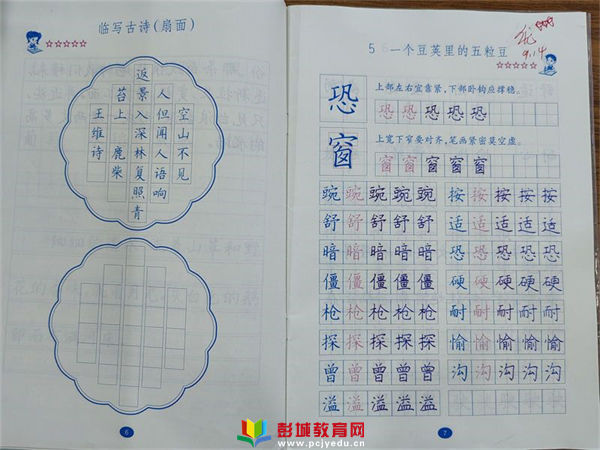 临写古诗(扇面)
☆☆☆☆☆
空山不见
人但闻人语响
返景入深林复照青
苔上 鹿柴
王维诗
6
5 一个豆荚里的五粒豆
9.14
☆☆☆☆☆
恐
上部左右宜靠紧,下部卧钩应撑稳。
恐恐恐恐恐
窗
上宽下窄要对齐,笔画紧密莫空虚。
窗窗窗窗窗
豌豌豌豌豌 按按按按按
舒舒舒舒舒 适适适适适
暗暗暗暗暗 恐恐恐恐恐
僵僵僵僵僵 硬硬硬硬硬
枪枪枪枪枪 耐耐耐耐耐
探探探探探 愉愉愉愉愉
曾曾曾曾曾 沟沟沟沟沟
溢溢溢溢溢
7
彭城教育网
www.pcjyedu.cn